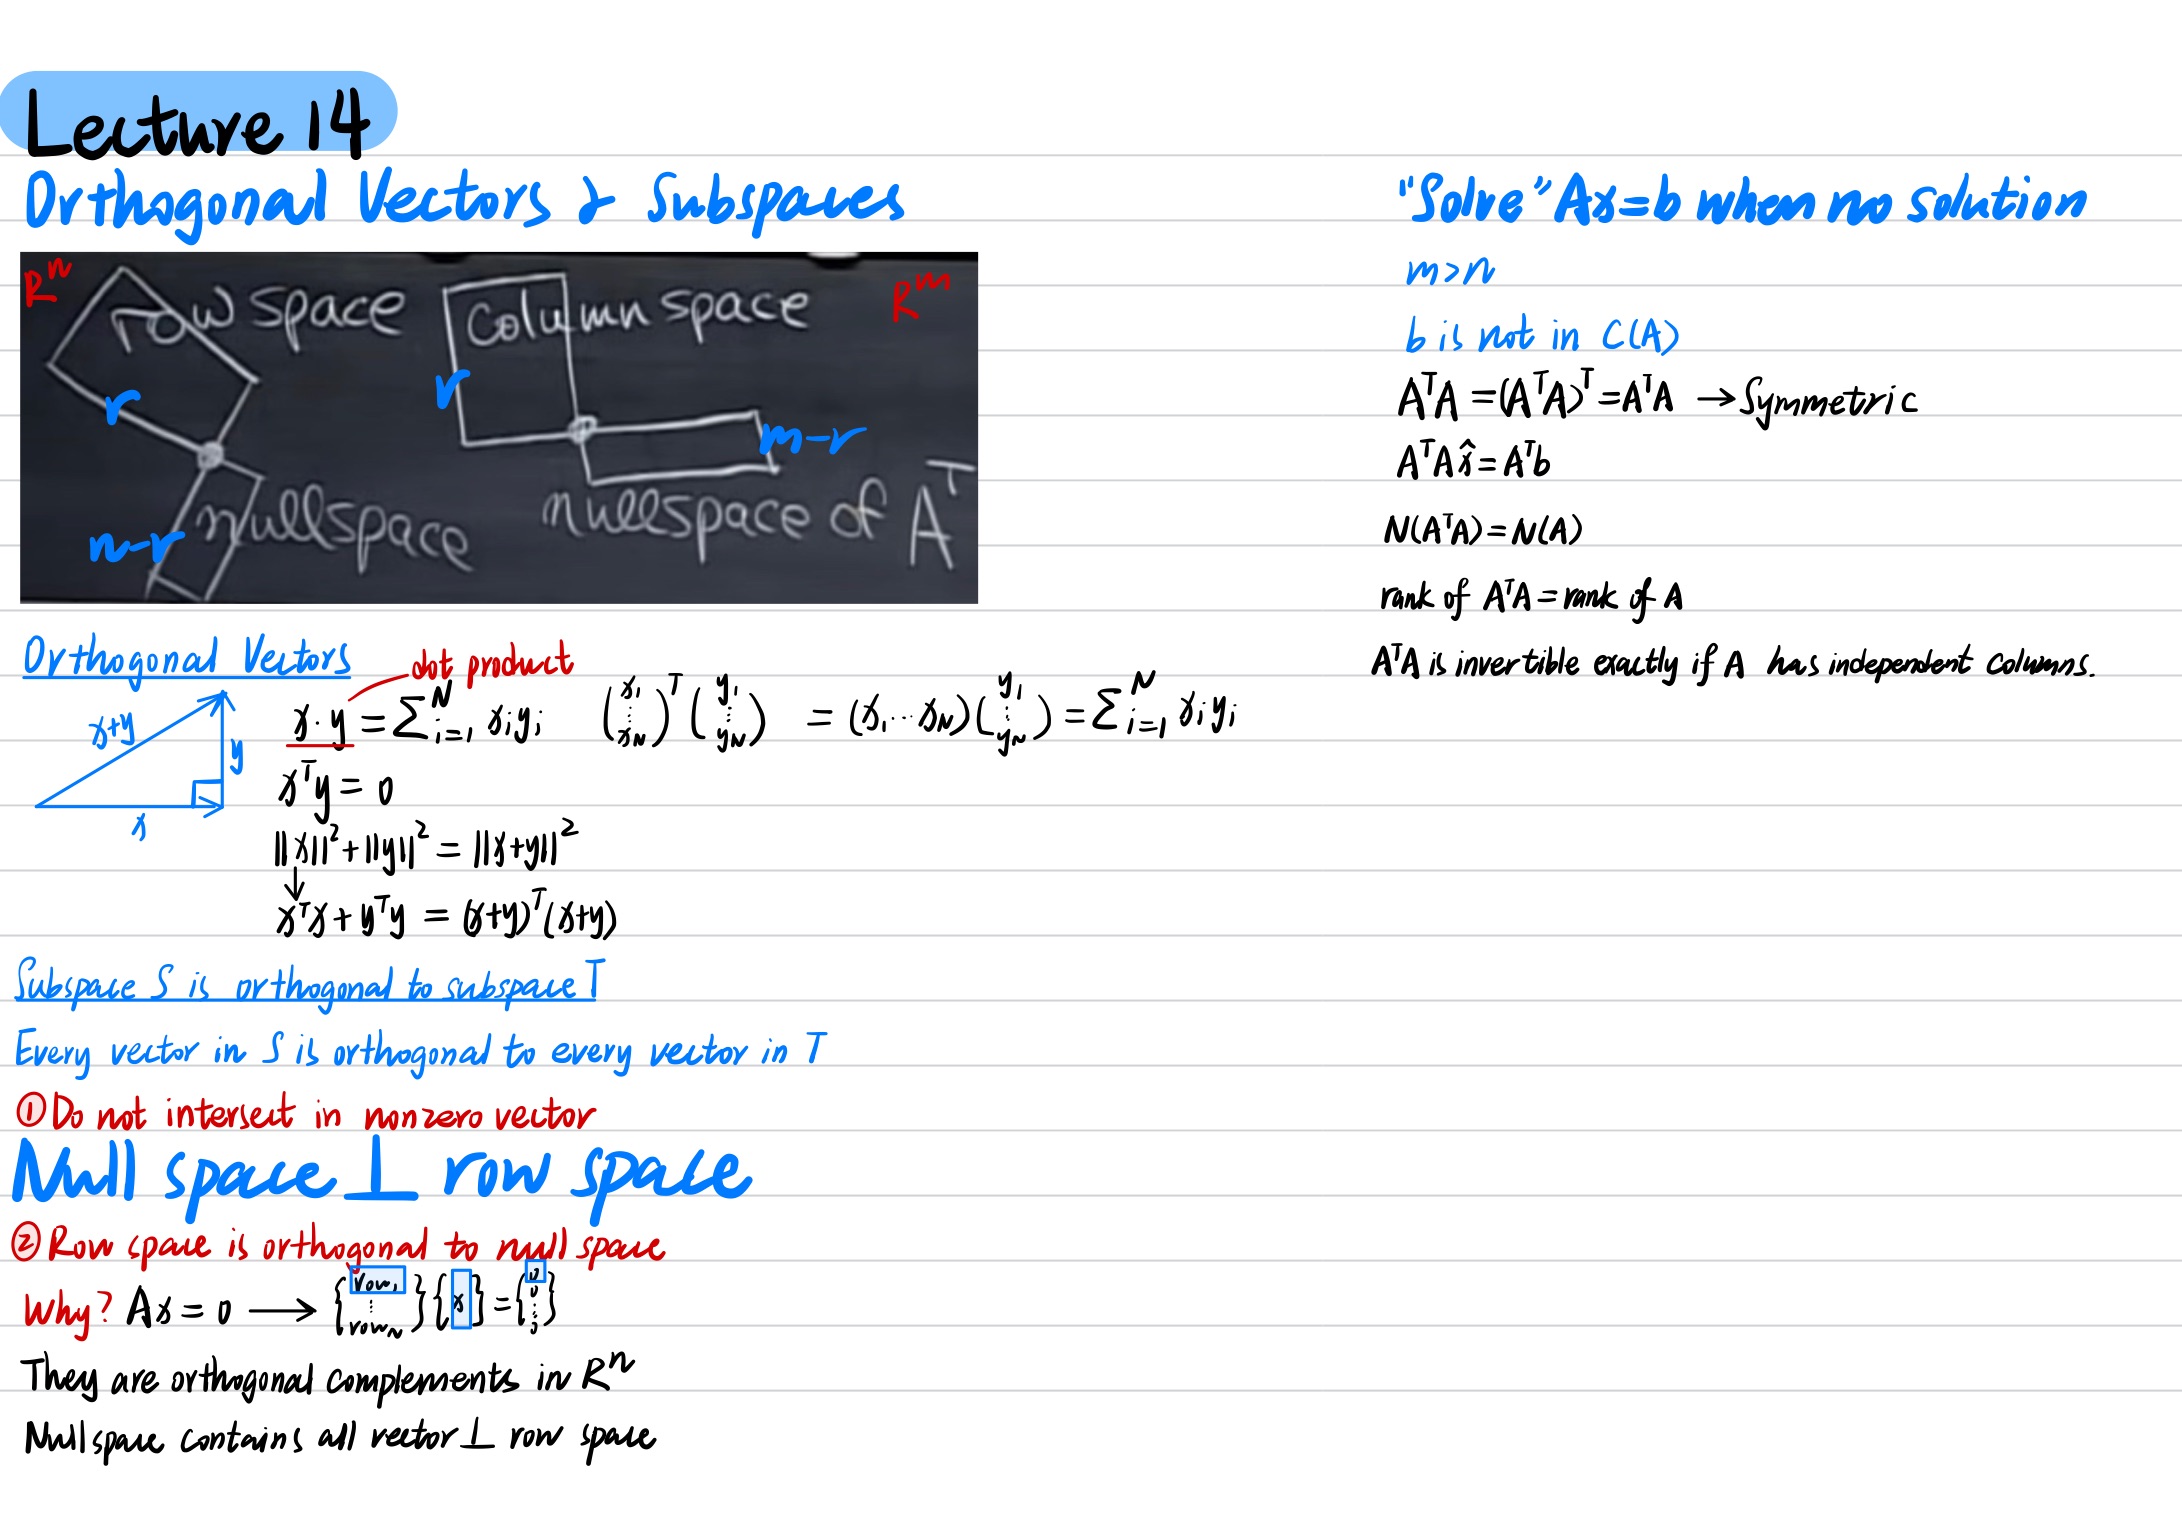 Lecture 14
Orthogonal Vectors & Subspaces
R^n
row space
column space
R^m
r
r
m-r
n-r
nullspace
nullspace of A^T
Orthogonal Vectors
dot product
x+y
y
x
x · y = ∑_{i=1}^N x_i y_i (x_1 ⋮ x_N)^T (y_1 ⋮ y_N) = (x_1 ... x_N)(y_1 ⋮ y_N) = ∑_{i=1}^N x_i y_i
x^T y = 0
||x||^2 + ||y||^2 = ||x+y||^2
↓
x^T x + y^T y = (x+y)^T (x+y)
Subspace S is orthogonal to subspace T
Every vector in S is orthogonal to every vector in T
① Do not intersect in nonzero vector
Null space ⊥ row space
② Row space is orthogonal to null space
Why? Ax = 0 ⟶ {row_1 ⋮ row_N} {x} = {0 0 ⋮ 0}
They are orthogonal complements in R^n
Nullspace contains all vector ⊥ row space
"Solve" Ax=b when no solution
m>n
b is not in C(A)
A^T A = (A^T A)^T = A^T A → Symmetric
A^T A x̂ = A^T b
N(A^T A) = N(A)
rank of A^T A = rank of A
A^T A is invertible exactly if A has independent columns.